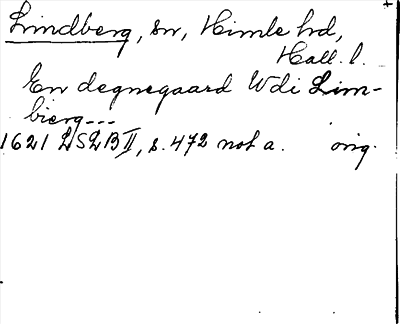 Lindberg, sn, Himle hd,
Hall. l.
En degnegaard Wdi Lim-
bierg---
1621 LSLB II, s. 472 not a. orig.